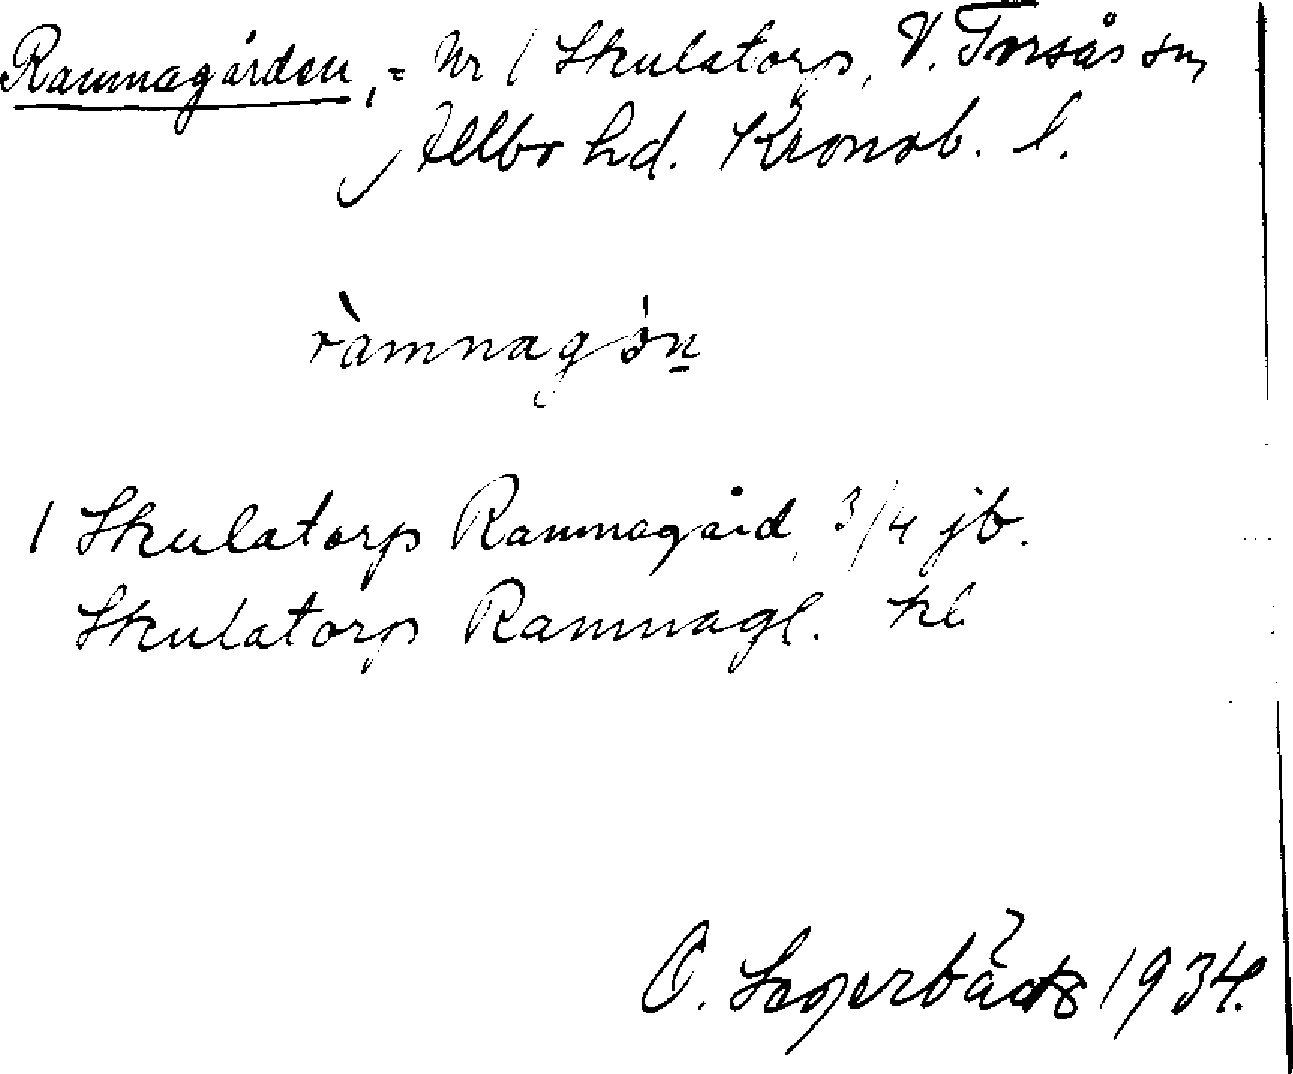 Ramnagården, = Nr 1 Skulatorp, V. Torsås sn,
Allbo hd. Kronob. l.
ràmnagȯn̲
1 Skulatorp Ramnagård, 3/4 jb.
Skulatorp Ramnagl. kl.
O. 1934.